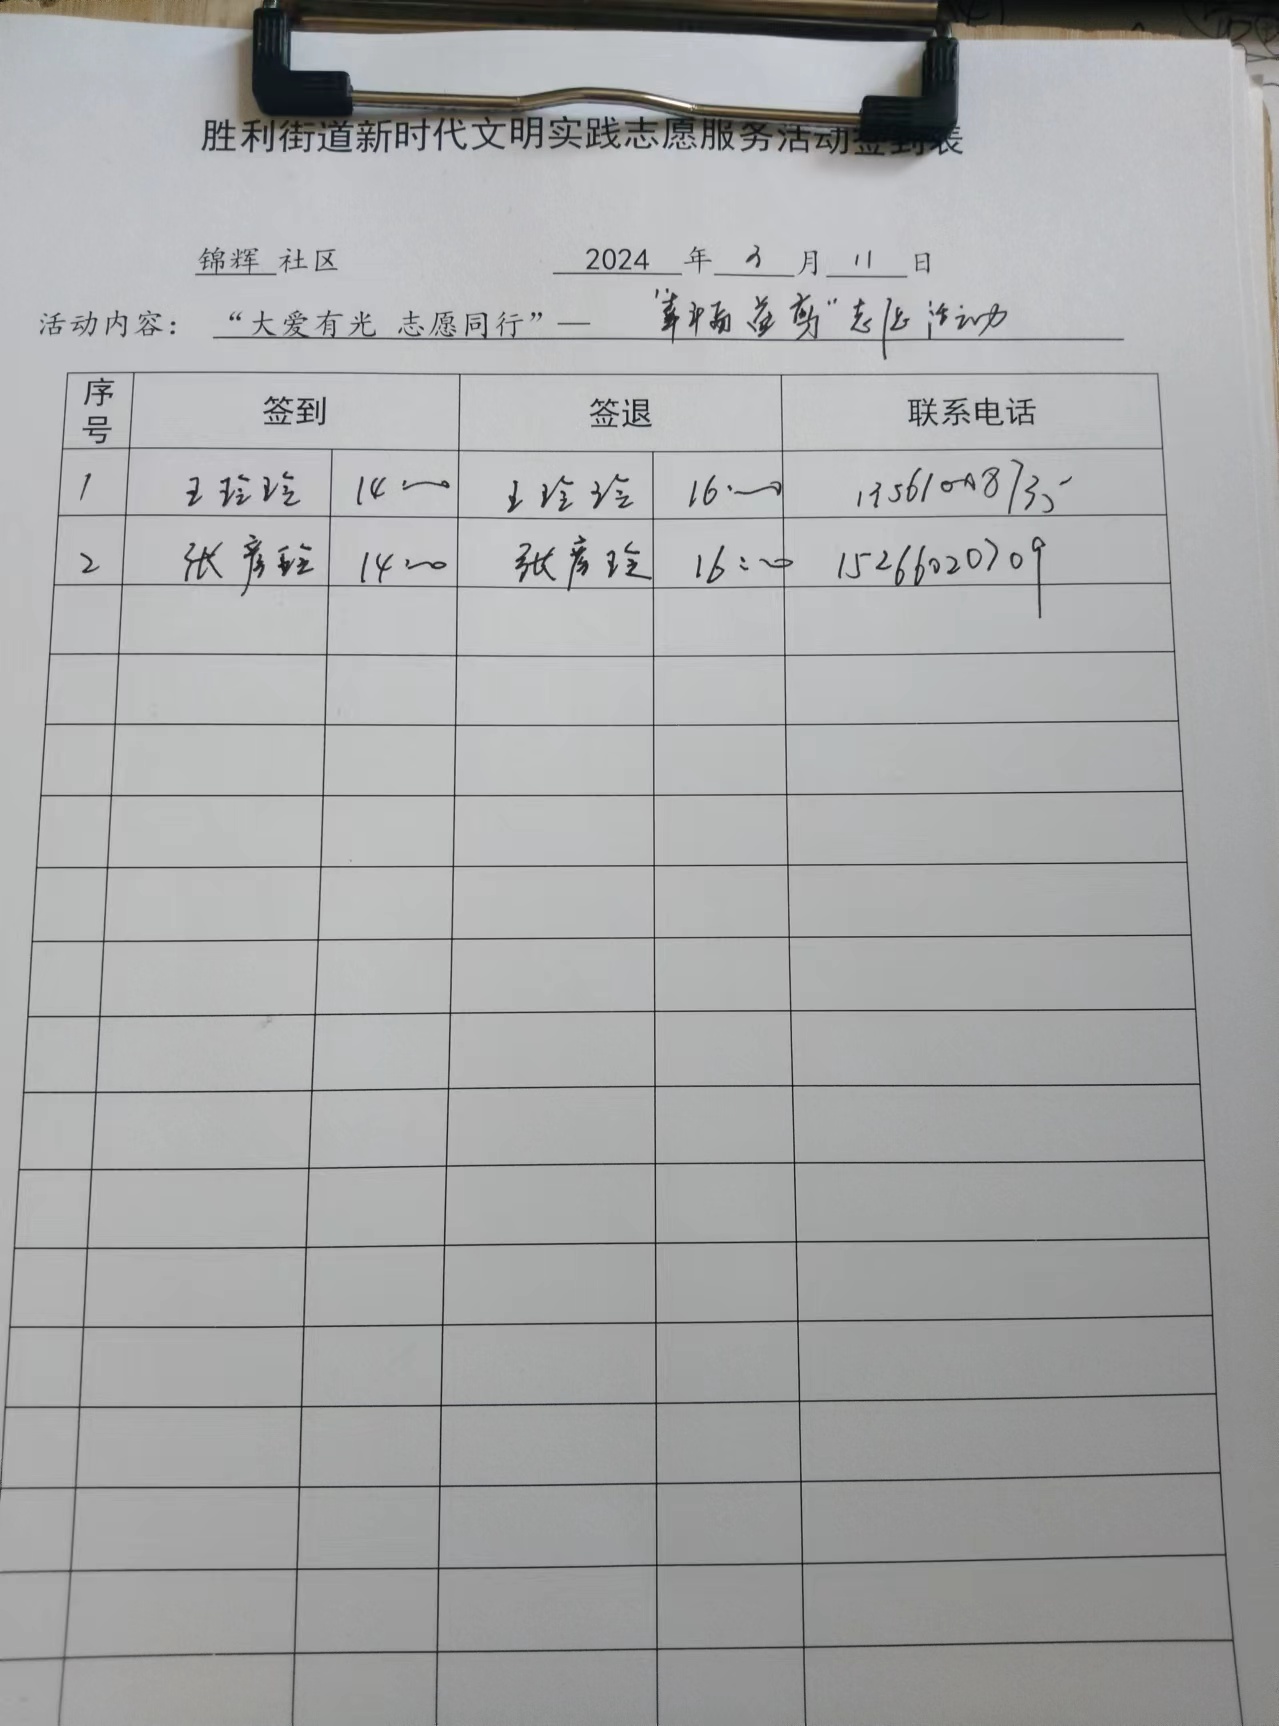 胜利街道新时代文明实践志愿服务活动签到表
锦辉 社区 2024 年 3 月 11 日
活动内容： “大爱有光 志愿同行”— “幸福益剪”志愿活动
序号 签到 签退 联系电话
1 王玲玲 14:00 王玲玲 16:00
2 张彦玲 14:00 张彦玲 16:00 15266020709